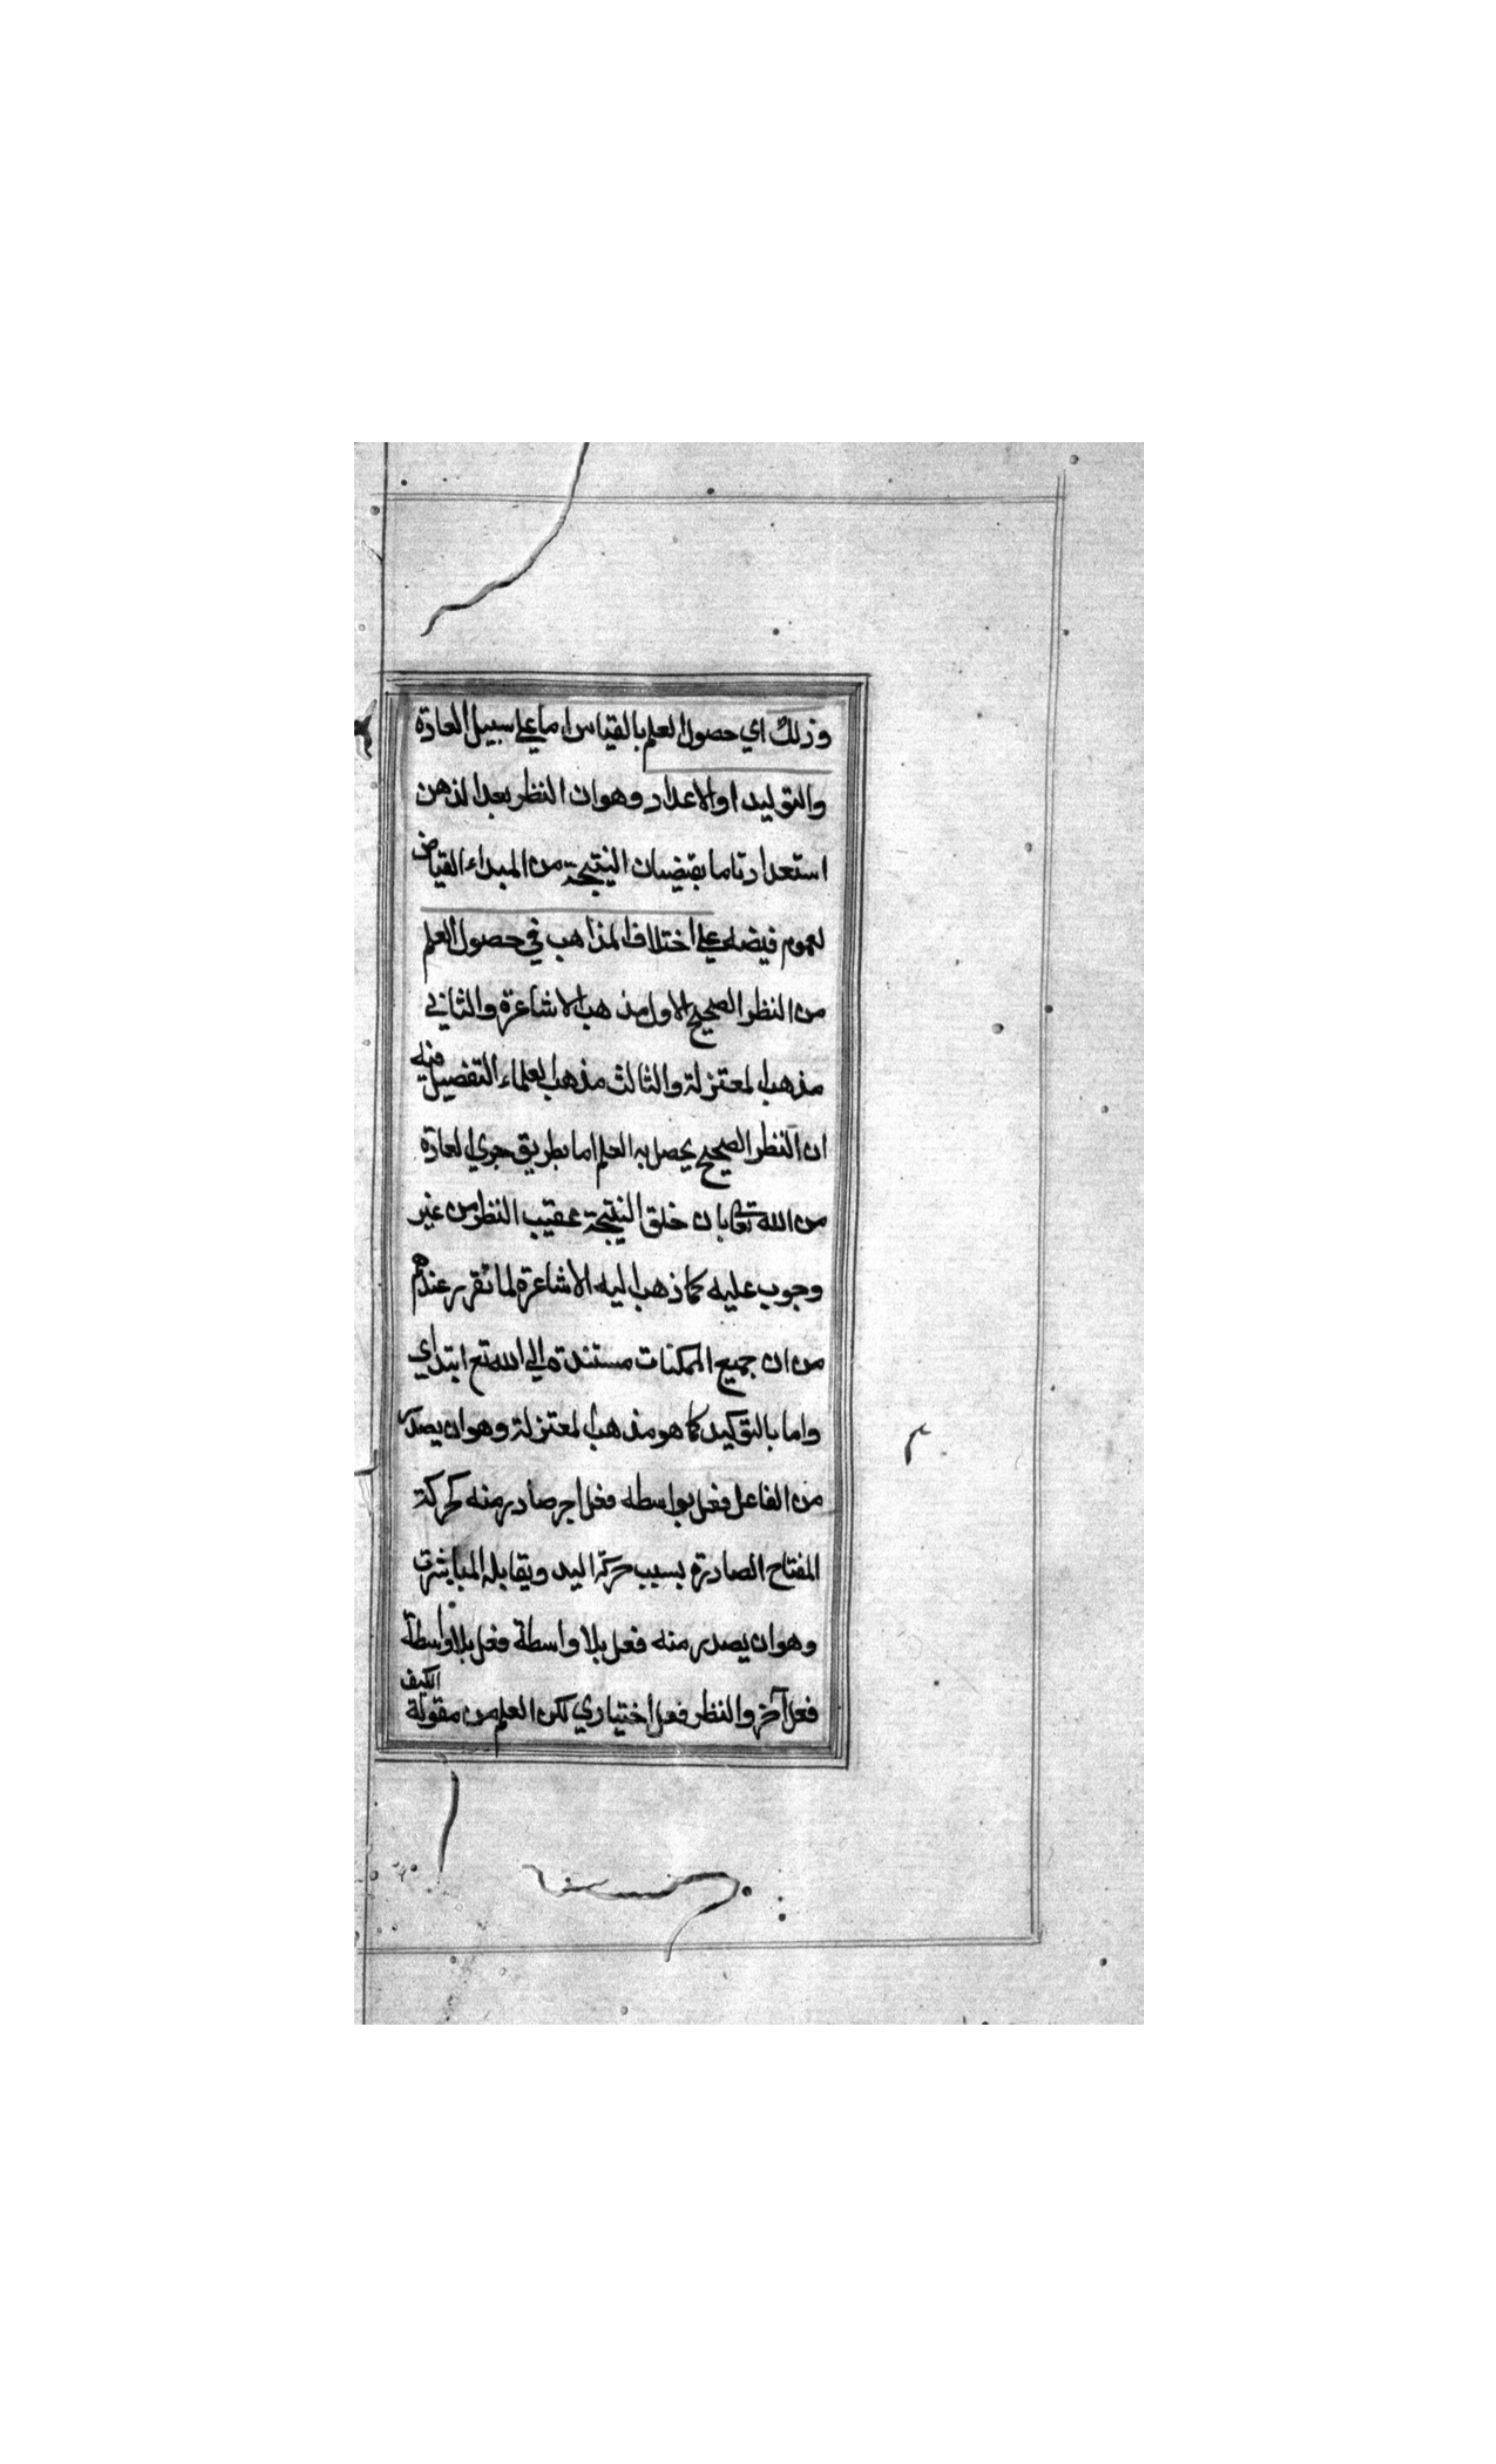 وذلك اي حصول العلم بالقياس اما علي سبيل العادة
والتوليد او الاعداد وهو ان النظر يعد الذهن
استعدادتاما بقيضان النتيجة من المبداء القياض
لعموم فيضه علي اختلاف المذاهب في حصول العلم
من النظر الصحيح الاول مذهب الاشاعرة والثاني
مذهب المعتزلة والثالث مذهب العلماء التفصيل فيه
ان النظر الصحيح يحصل به العلم اما بطريق جري العادة
من الله تعالى بان خلق النتيجة عقيب النظر من غير
وجوب عليه كما ذهب اليه الاشاعرة لما تقرر عندهم
من ان جميع الممكنات مستندة الي الله تع ابتداي
واما بالتوكيد كما هو مذهب المعتزلة وهو ان يصدر
من الفاعل فعل بواسطه فعل اجر صادر منه كحركة
المفتاح الصادرة بسبب حركة اليد ويقابله المباشرت
وهو ان يصدر منه فعل بلا واسطة فعل بلا واسطة
فعل آخر والنظر فعل اختياري لكن العلم من مقولة الكيف